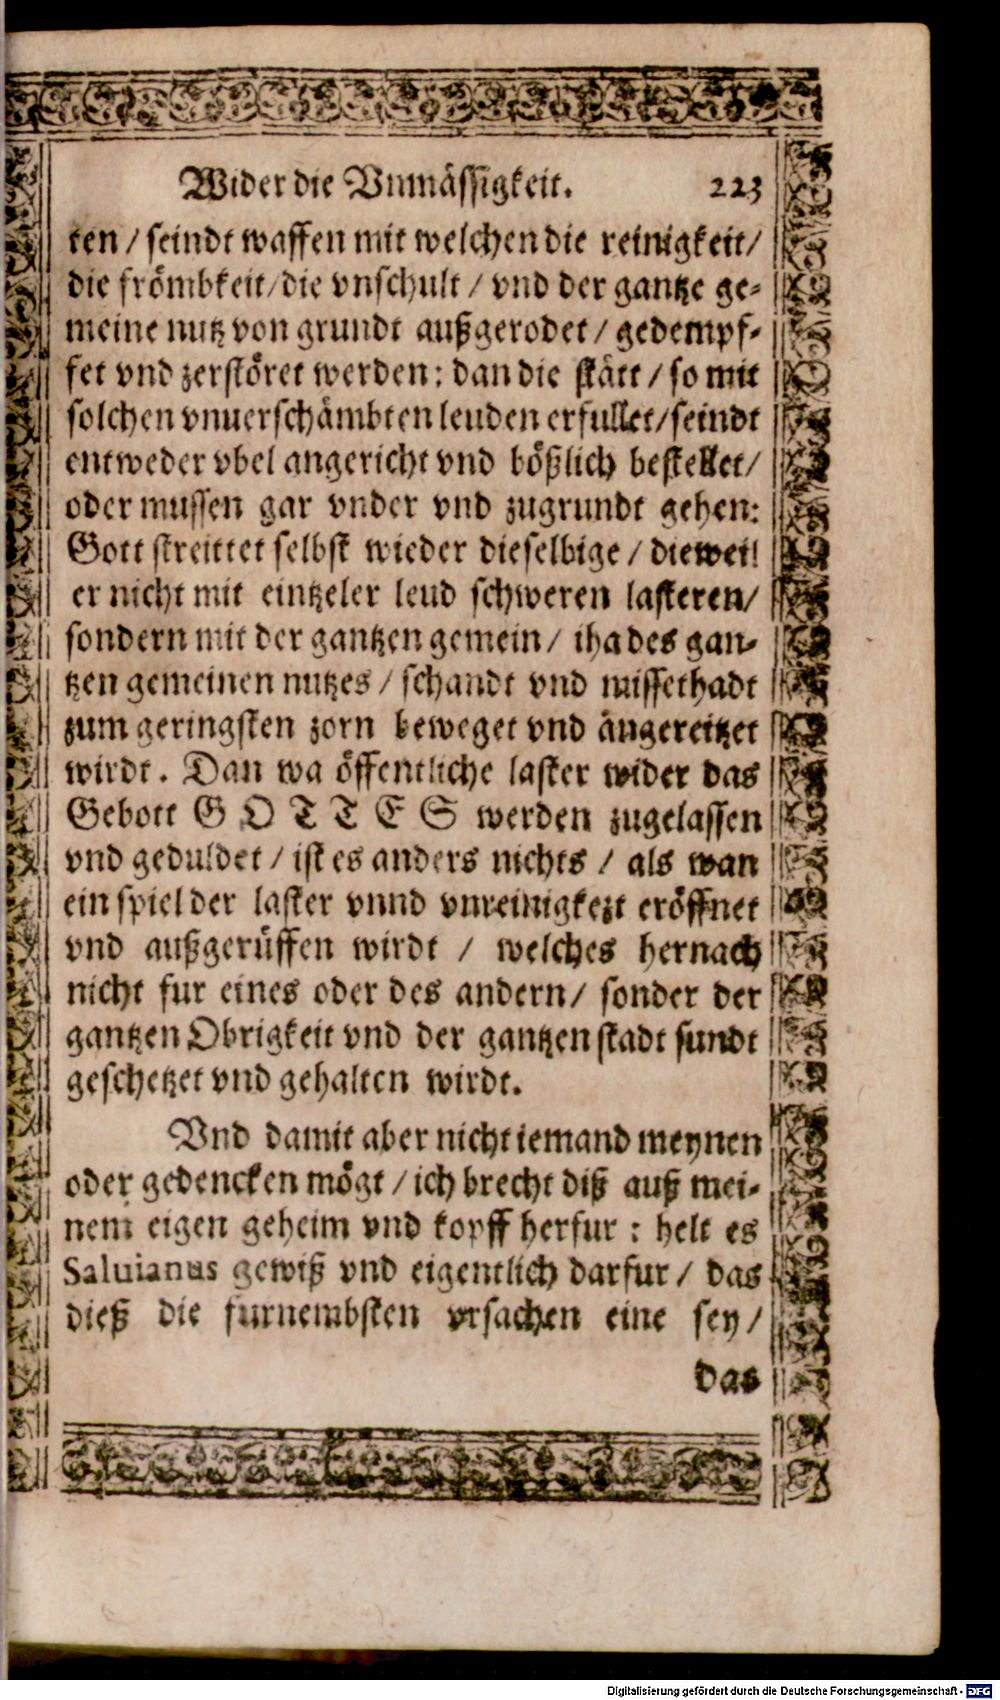 Wider die Vnmässigkeit. 223
ten / seindt waffen mit welchen die reinigkeit/
die frömbkeit/die vnschult / vnd der gantze ge-
meine nutz von grundt außgerodet / gedempf-
fet vnd zerstöret werden: dan die stätt / so mit
solchen vnuerschämbten leuden erfullet/seindt
entweder vbel angericht vnd bößlich bestellet/
oder mussen gar vnder vnd zugrundt gehen:
Gott streittet selbst wieder dieselbige / dieweil
er nicht mit eintzeler leud schweren lasteren/
sondern mit der gantzen gemein / iha des gan-
tzen gemeinen nutzes / schandt vnd missethadt
zum geringsten zorn beweget vnd ängereitzet
wirdt. Dan wa öffentliche laster wider das
Gebott G O T T E S werden zugelassen
vnd geduldet / ist es anders nichts / als wan
ein spiel der laster vnnd vnreinigkezt eröffnet
vnd außgerüffen wirdt / welches hernach
nicht fur eines oder des andern/ sonder der
gantzen Obrigkeit vnd der gantzen stadt sundt
geschetzet vnd gehalten wirdt.
Vnd damit aber nicht iemand meynen
oder gedencken mögt / ich brecht diß auß mei-
nem eigen geheim vnd kopff herfur : helt es
Saluianus gewiß vnd eigentlich darfur / das
dieß die furnembsten vrsachen eine sey/
das
Digitalisierung gefördert durch die Deutsche Forschungsgemeinschaft - DFG